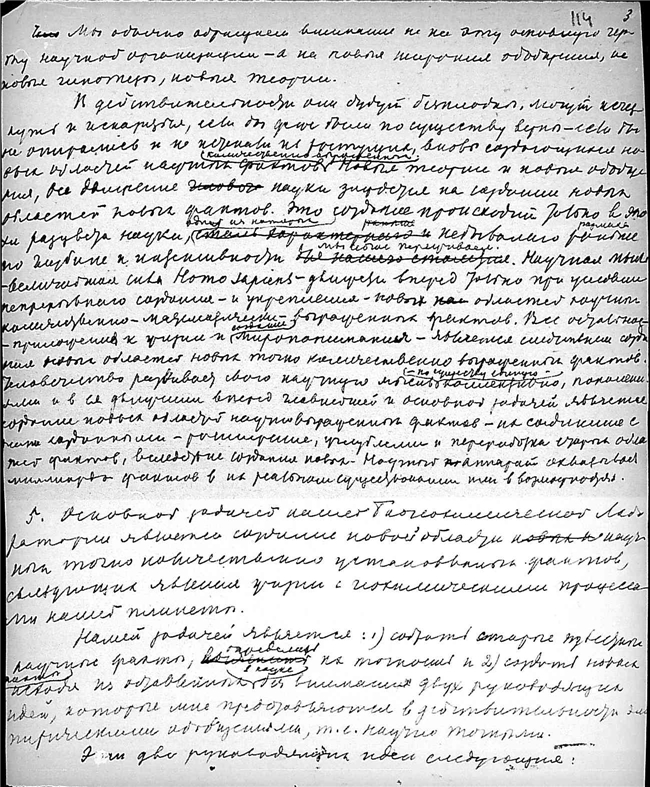 114 3
Мы обычно обращаем внимание не на эту основную чер-
ту научной организации – а на новые широкие обобщения, на
новые гипотезы, новые теории.
В действительности они будут бесплодны, могут исчез-
нуть и искариться, если бы даже были по существу верны – если бы
не опирались и не исходили из растущих, вновь создающихся но-
количественно выраженных
вых областей научных фактов. Новые теории и новые обобще-
ния, все движение науки зиждется на создании новых
областей новых фактов. Это создание происходит только в эпо-
один из которых
хи расцвета науки, и небывалого
мы сейчас переживаем
по глубине и интенсивности. Научная мысль
– величайшая сила Homo sapiens – движется вперед только при условии
непрерывного создания – и укрепления – новых областей научных
количественно – математически – выраженных фактов. Все остальное
– приложение к жизни и миропонимания – является следствием созда-
ния областей новых точно количественно выраженных фактов.
– по существу единую –
Человечество развивает свою научную мысль коллективно, поколени-
ями и в ее движении вперед главнейшей и основной задачей является
создание новых областей научно выраженных фактов – их соединение с
ранее созданными – расширение, углубление и переработка старых обла-
стей фактов, вследствие создания новых. Научный аппарат охватывает
миллиарды фактов в их реальном существовании или в возможностях.
5. Основной задачей нашей Биогеохимической Лабо-
ратории является создание новой области науч-
ных точно количественно установленных фактов,
связующих явления жизни с геохимическими процесса-
ми нашей планеты.
Нашей задачей является: 1) собрать старые известные
научные факты, их точность и 2) создать новые
факты в науке
исходя из оставленных без внимания двух руководящих
идей, которые мне представляются в действительности эм-
пирическими обобщениями, т.е. научно точными.
Эти две руководящие идеи следующие: